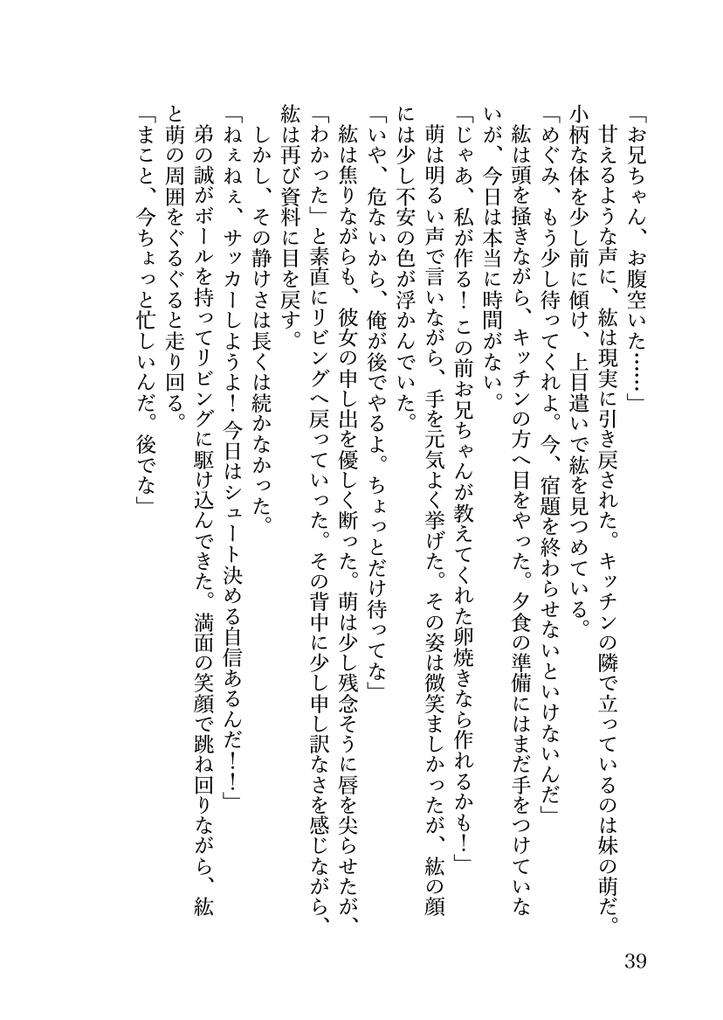 「お兄ちゃん、お腹空いた……」
　甘えるような声に、紘は現実に引き戻された。キッチンの隣で立っているのは妹の萌だ。
小柄な体を少し前に傾け、上目遣いで紘を見つめている。
「めぐみ、もう少し待ってくれよ。今、宿題を終わらせないといけないんだ」
　紘は頭を掻きながら、キッチンの方へ目をやった。夕食の準備にはまだ手をつけていな
いが、今日は本当に時間がない。
「じゃあ、私が作る！この前お兄ちゃんが教えてくれた卵焼きなら作れるかも！」
　萌は明るい声で言いながら、手を元気よく挙げた。その姿は微笑ましかったが、紘の顔
には少し不安の色が浮かんでいた。
「いや、危ないから、俺が後でやるよ。ちょっとだけ待ってな」
　紘は焦りながらも、彼女の申し出を優しく断った。萌は少し残念そうに唇を尖らせたが、
「わかった」と素直にリビングへ戻っていった。その背中に少し申し訳なさを感じながら、
紘は再び資料に目を戻す。
　しかし、その静けさは長くは続かなかった。
「ねぇねぇ、サッカーしようよ！今日はシュート決める自信あるんだ！！」
　弟の誠がボールを持ってリビングに駆け込んできた。満面の笑顔で跳ね回りながら、紘
と萌の周囲をぐるぐると走り回る。
「まこと、今ちょっと忙しいんだ。後でな」
39